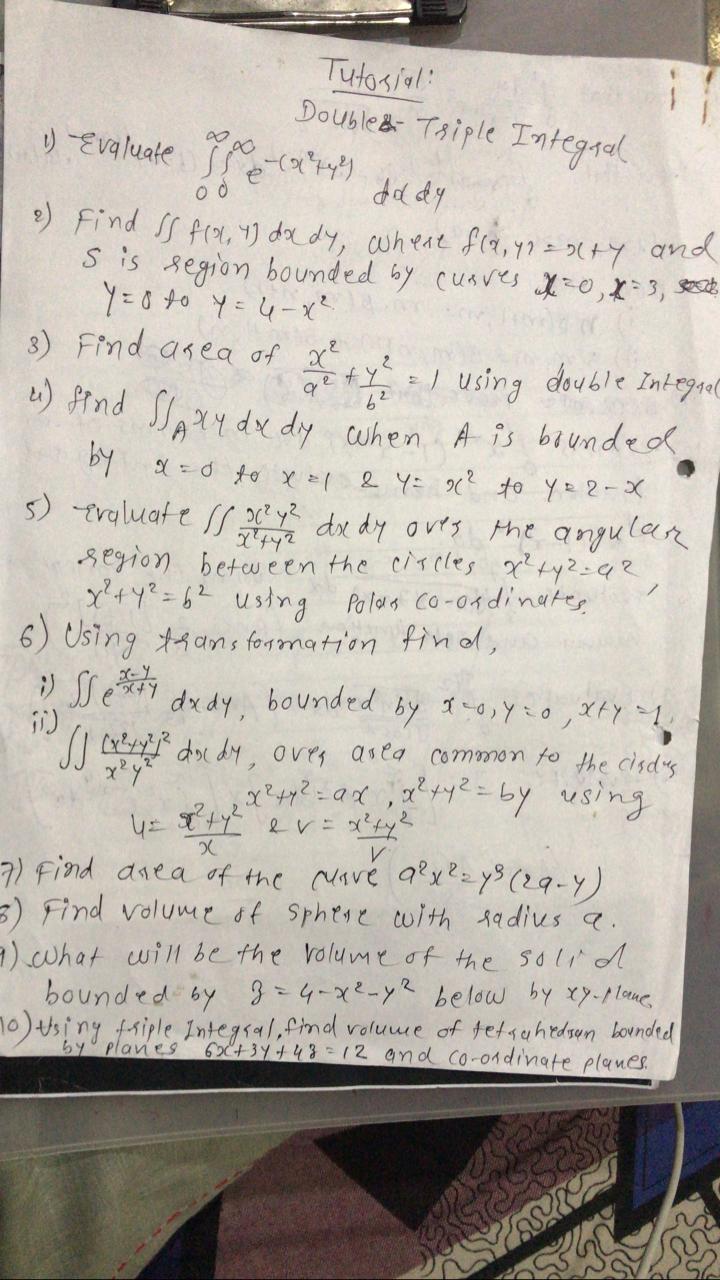 Tutorial:
Double & Triple Integral
1) Evaluate ∫₀^∞ ∫₀^∞ e^-(x²+y²) dx dy
2) Find ∫∫ f(x, y) dx dy, where f(x, y) = x+y and
S is region bounded by curves x=0, x=3,
y=0 to y = 4-x²
3) Find area of x²/a² + y²/b² = 1 using double Integral
4) find ∫∫_A xy dx dy when A is bounded
by x=0 to x=1 & y= x² to y=2-x
5) Evaluate ∫∫ x²y²/x²+y² dx dy over the angular
region between the circles x²+y²=a²,
x²+y²=b² using Polar co-ordinates.
6) Using transformation find,
i) ∫∫ e^(x-y/x+y) dx dy, bounded by x=0, y=0, x+y=1.
ii) ∫∫ (x²+y²)²/x²y² dx dy, over area common to the circles
x²+y²=ax, x²+y²=by using
u= x²+y²/x & v= x²+y²/v
7) Find area of the curve a²x²=y³(2a-y)
8) Find volume of sphere with radius a.
9) What will be the volume of the solid
bounded by z=4-x²-y² below by xy-plane
10) Using triple Integral, find volume of tetrahedran bounded
by planes 6x+3y+4z=12 and co-ordinate planes.